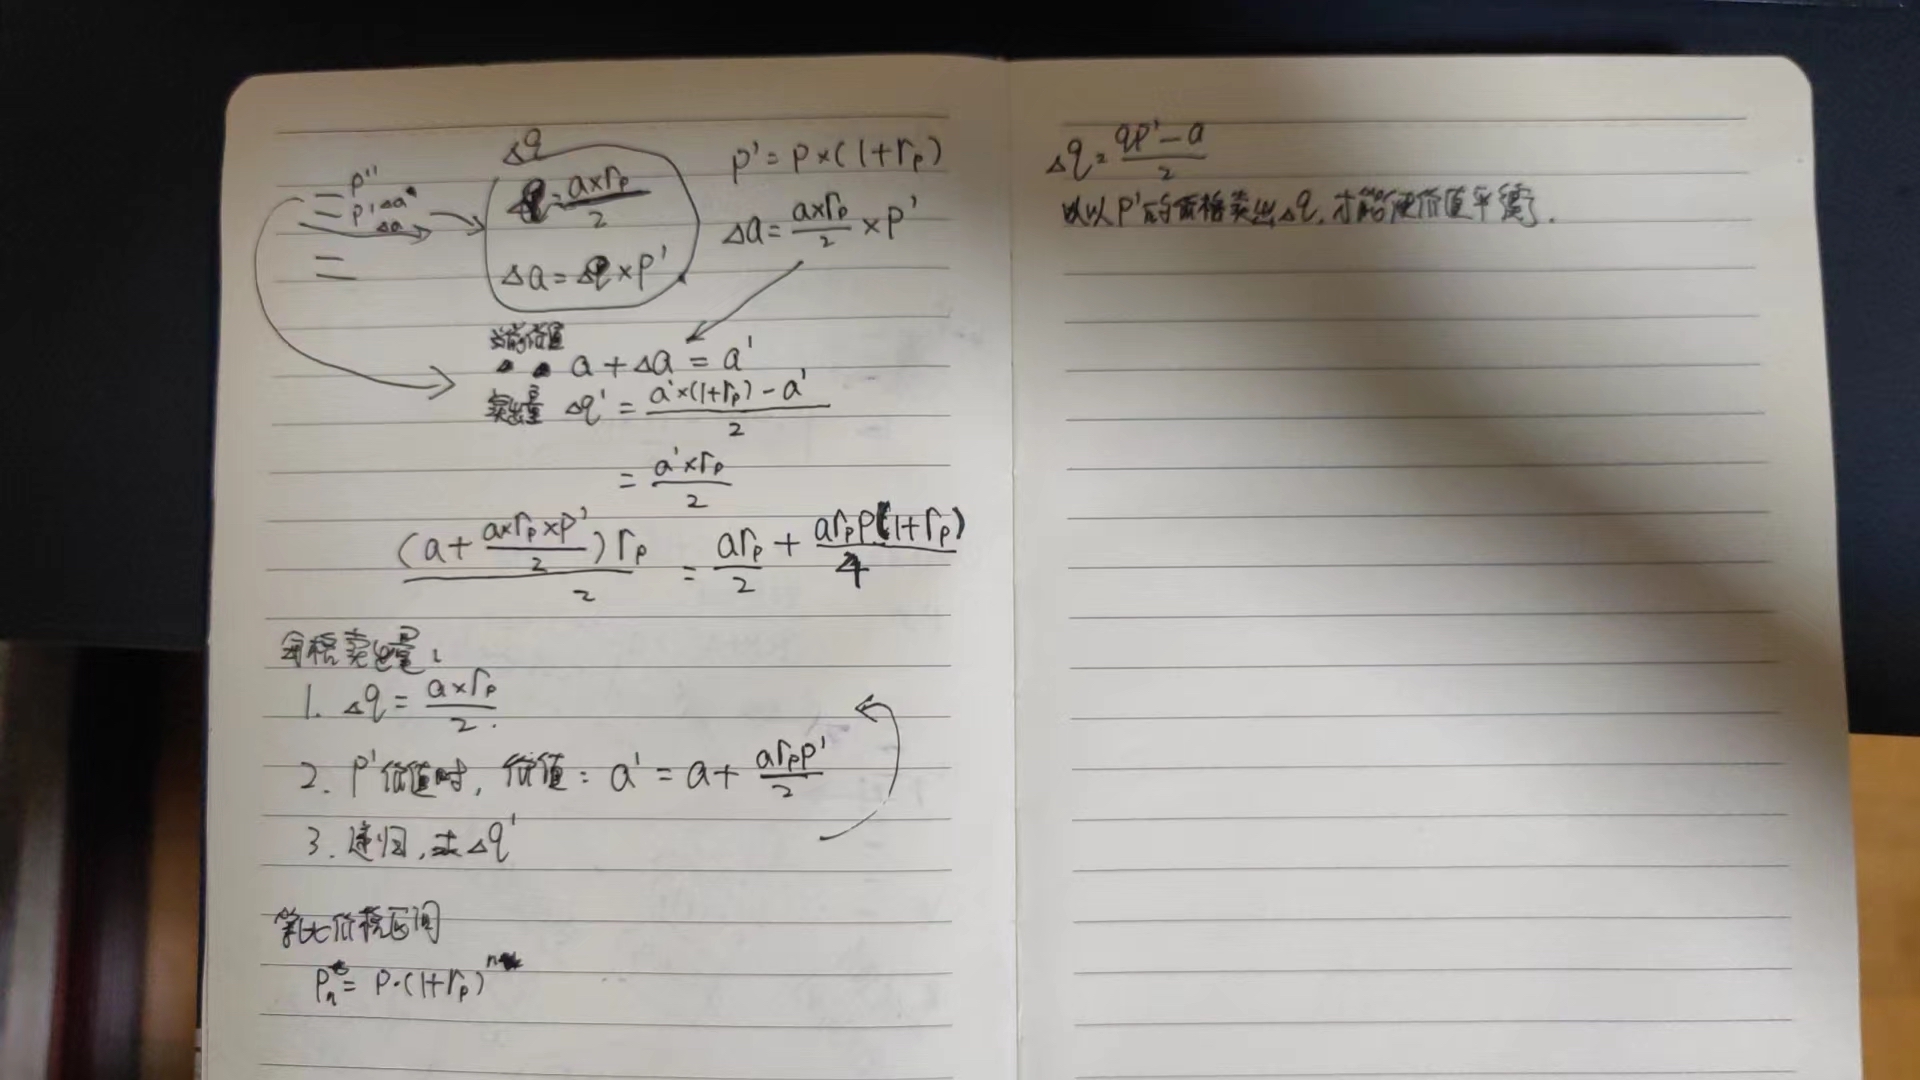 Δq
p''
p' Δa'
Δa
Δq = a×rₚ / 2
Δa = Δq × p'
p' = p×(1+rₚ)
Δa = a×rₚ / 2 × p'
当前价值
a + Δa = a'
卖出量 Δq' = a'×(1+rₚ) - a' / 2
= a'×rₚ / 2
(a + a×rₚ×p' / 2) rₚ / 2 = arₚ / 2 + arₚp(1+rₚ) / 4
卖出量:
1. Δq = a×rₚ / 2.
2. p'价值时, 价值: a' = a + arₚp' / 2
3. 递归, 求Δq'
等比价格区间
pₙ = p·(1+rₚ)ⁿ
Δq = qp' - a / 2
以以p'的价格卖出Δq, 才能使价值平衡.